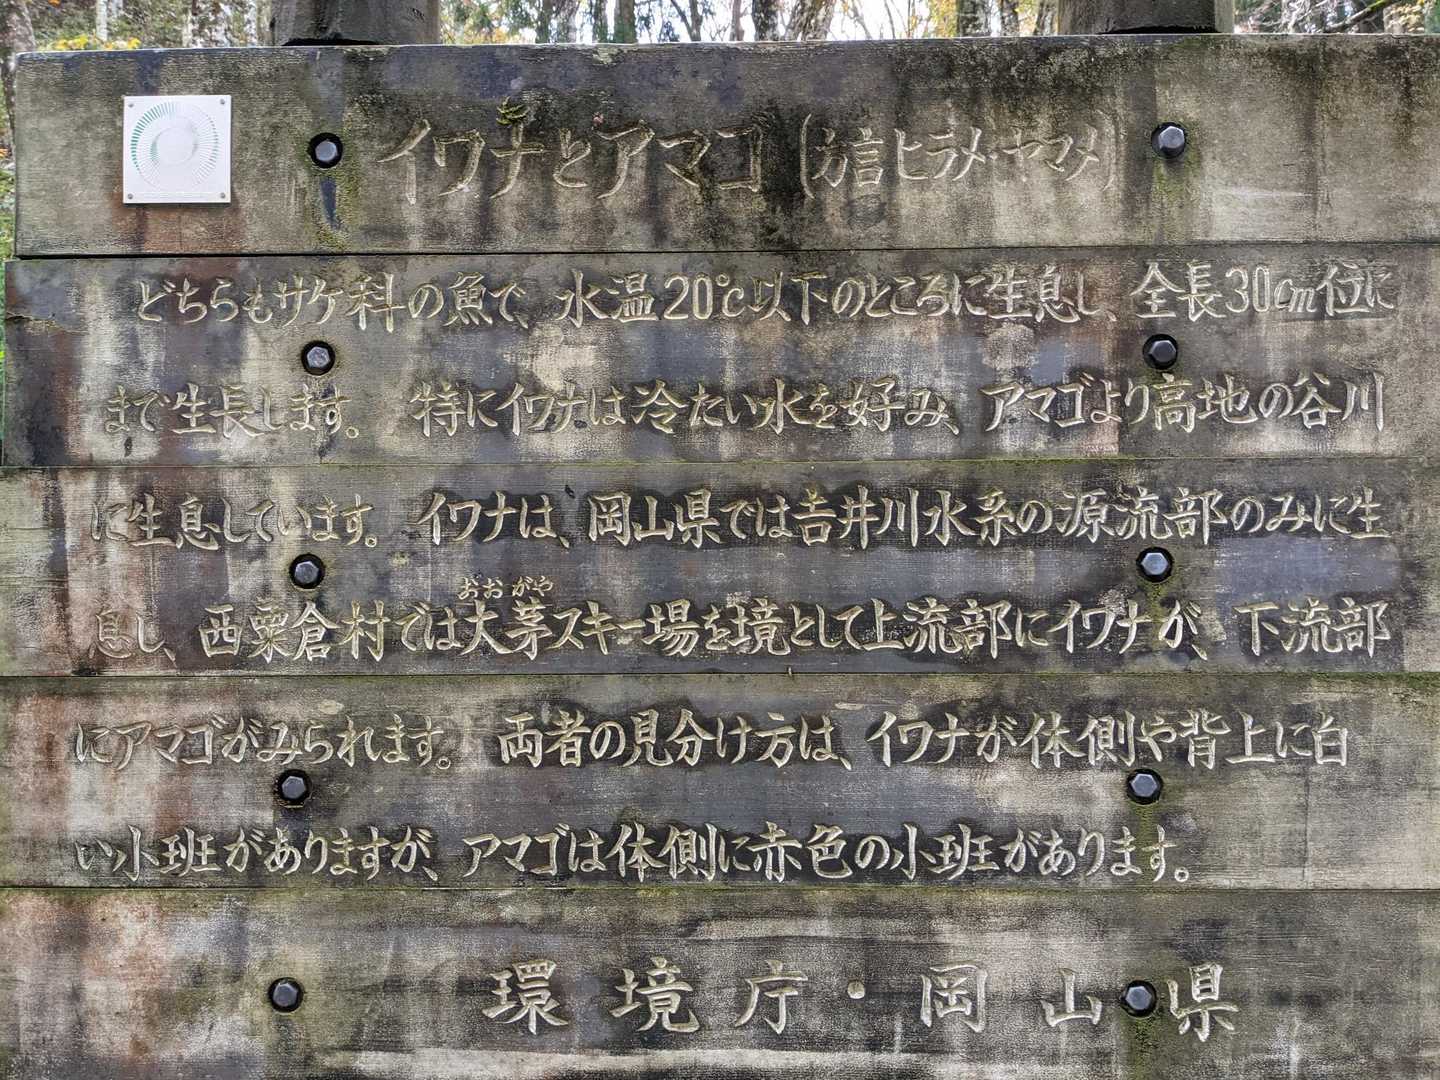 イワナとアマゴ(方言ヒラメ・ヤマメ)
どちらもサケ科の魚で、水温20℃以下のところに生息し、全長30cm位に
まで生長します。 特にイワナは冷たい水を好み、アマゴより高地の谷川
に生息しています。 イワナは、岡山県では吉井川水系の源流部のみに生
おおがや
息し、西粟倉村では大茅スキー場を境として上流部にイワナが、下流部
にアマゴがみられます。 両者の見分け方は、イワナが体側や背上に白
い小斑がありますが、アマゴは体側に赤色の小斑があります。
環境庁・岡山県